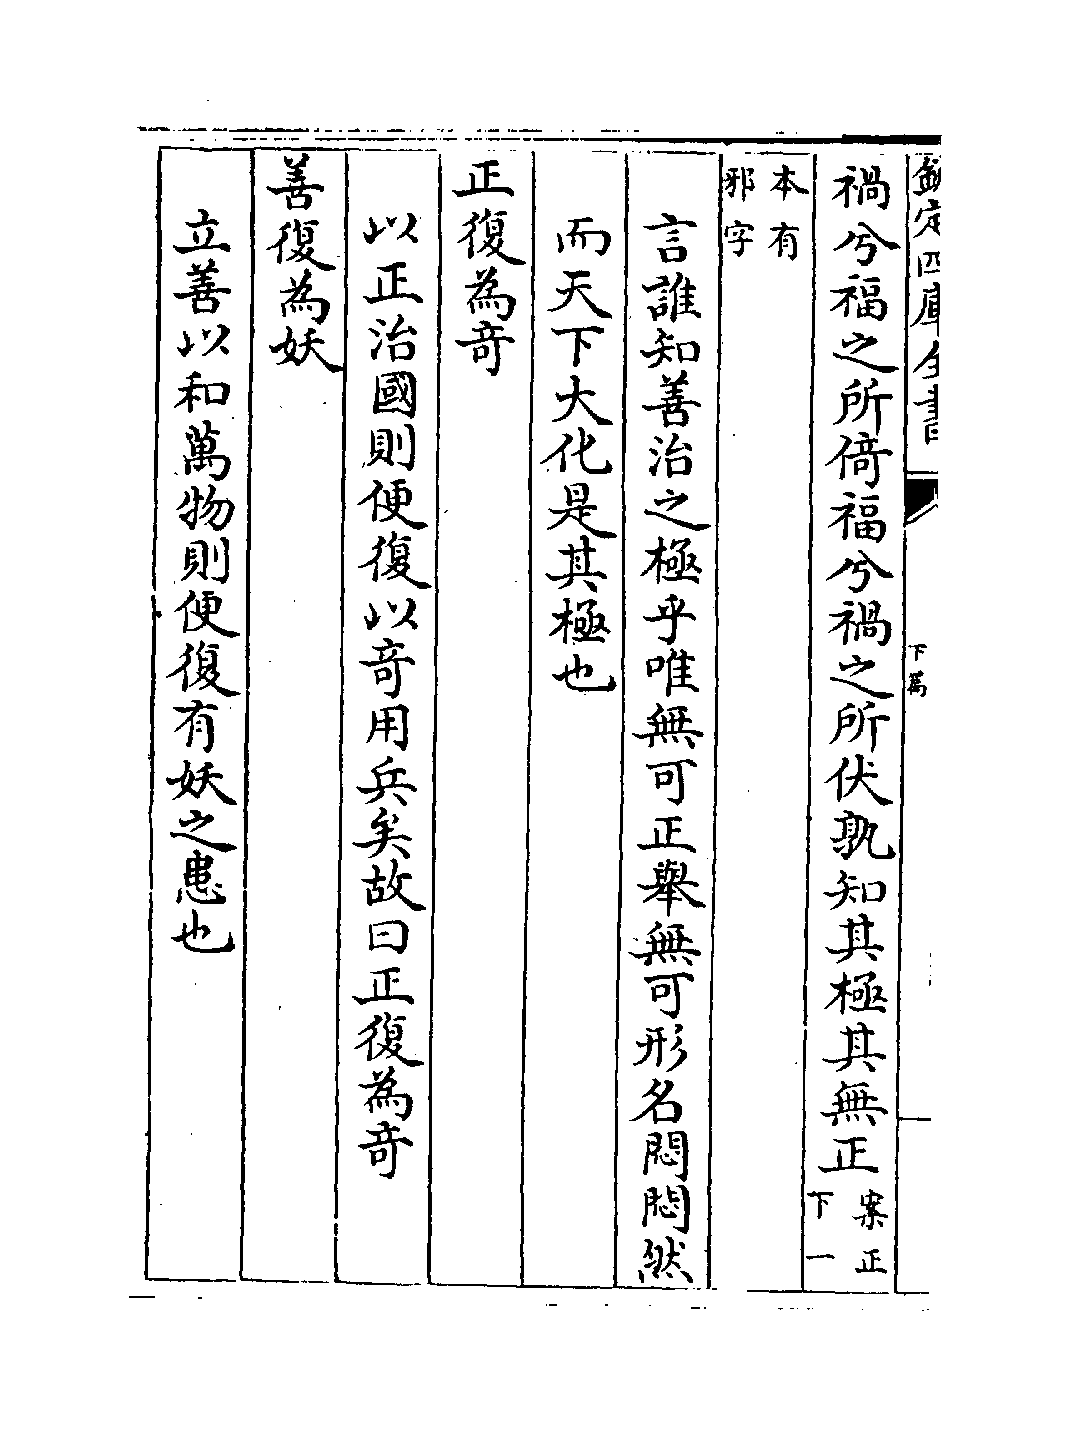 欽定四庫全書
下篇
禍兮福之所倚福兮禍之所伏孰知其極其無正案正下一
本有邪字
言誰知善治之極乎唯無可正舉無可形名悶悶然
而天下大化是其極也
正復為奇
以正治國則便復以奇用兵矣故曰正復為奇
善復為妖
立善以和萬物則便復有妖之患也